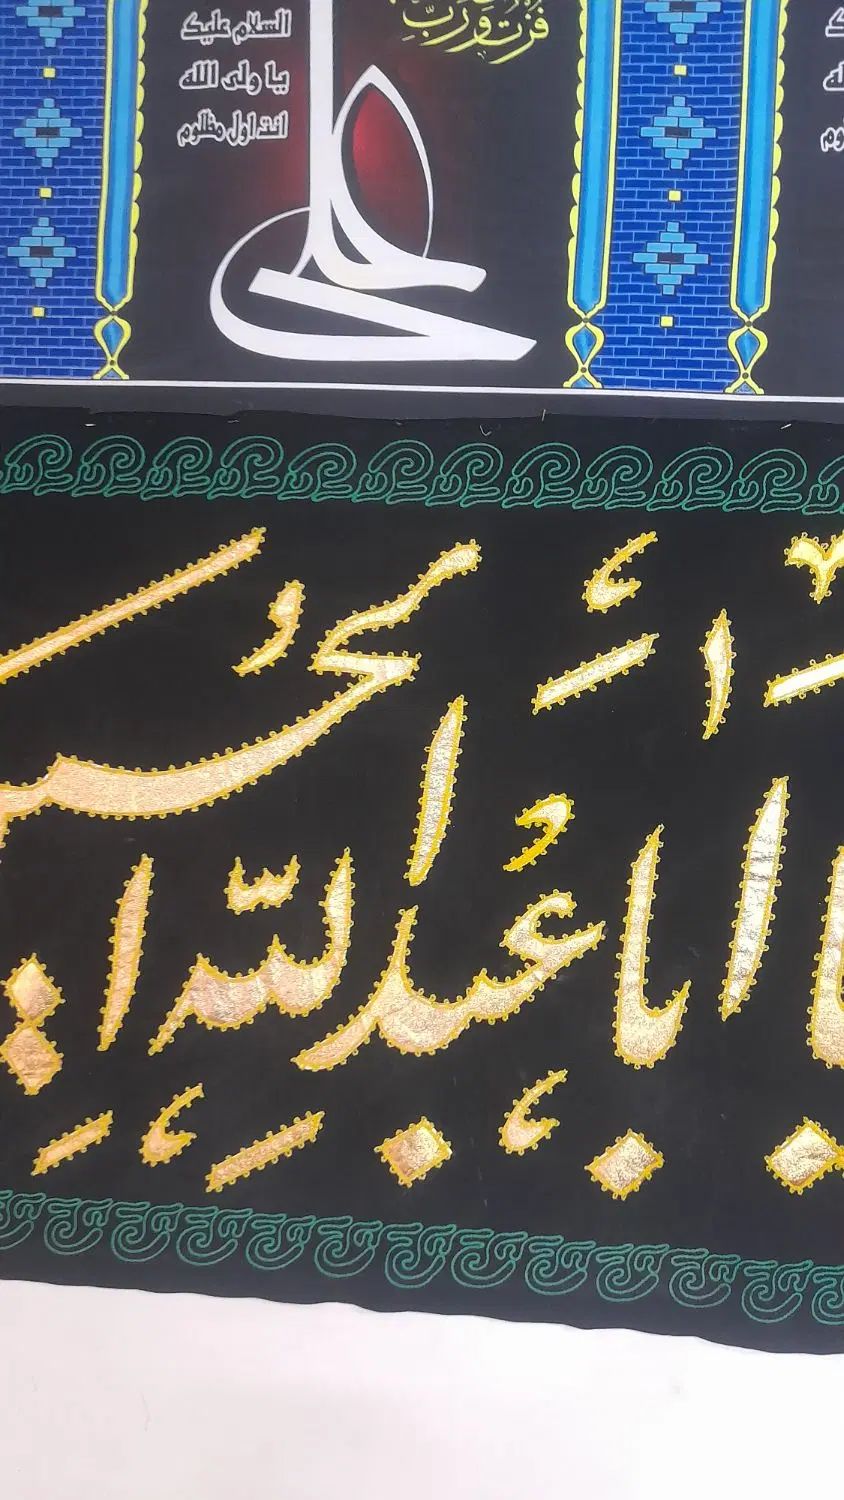 فُزْتُ وَ رَبِّ
السلام علیک
یا ولی الله
انت اول مظلوم
علی
یا اَباعَبدِاللهِ الحُسین